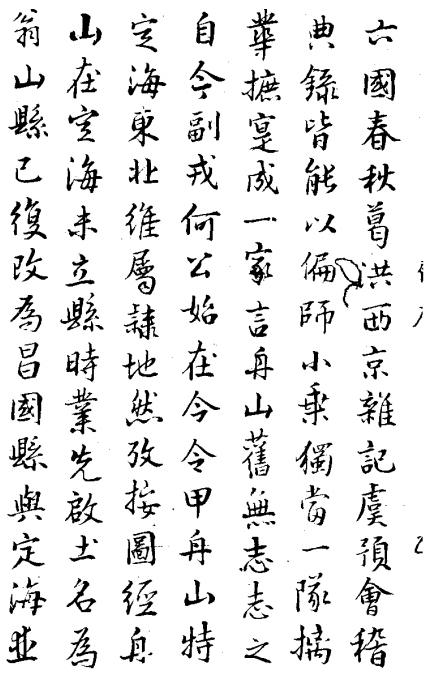 六國春秋葛洪西京雜記虞預會稽
典錄皆能以偏師小乘獨當一隊摛
華摭寔成一家言舟山舊無志志之
自今副戎何公始在今令甲舟山特
定海東北維屬隷地然攷按圖經舟
山在定海未立縣時業先啟土名為
翁山縣已復改為昌國縣與定海並